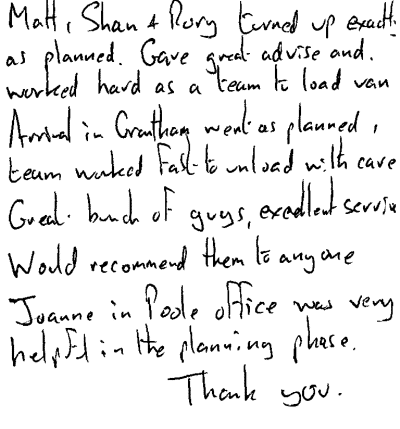 Matt, Shan & Rory turned up exactl
as planned. Gave great advise and.
worked hard as a team to load van
Arrival in Grantham went as planned,
team worked fast to unload with care
Great bunch of guys, excellent servic
Would recommend them to anyone
Joanne in Poole office was very
helpful in the planning phase.
Thank you.